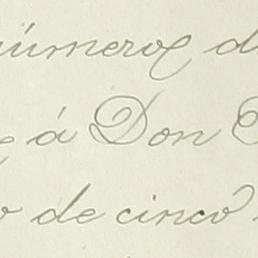 números d
á Don
o de cinco